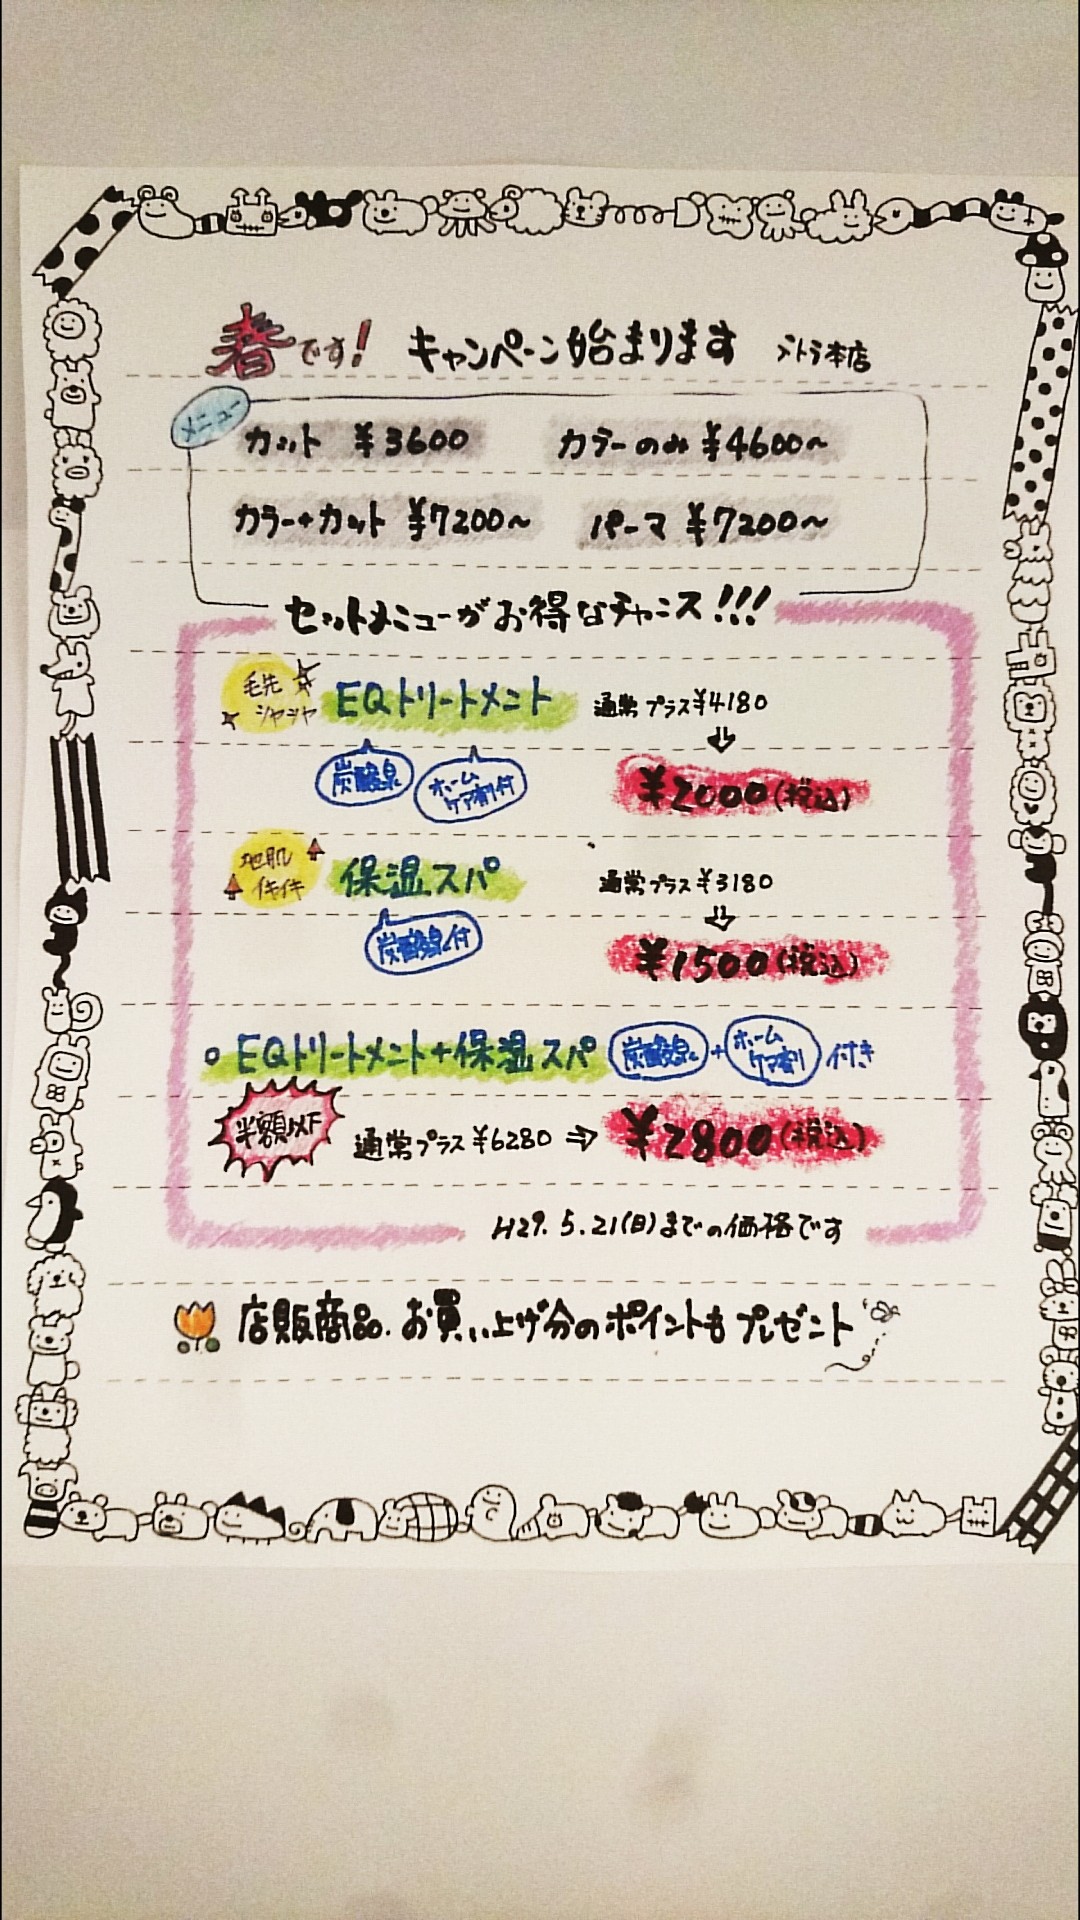 春です! キャンペーン始まります 本店
メニュー
カット ¥3600 カラーのみ ¥4600~
カラー+カット ¥7200~ パーマ ¥7200~
セットメニューがお得なチャンス!!!
毛先
EQトリートメント 通常プラス¥4180
⇩
炭酸泉 ホームケア剤付
¥2000(税込)
地肌イキイキ
保湿スパ 通常プラス¥3180
⇩
炭酸泉付
¥1500(税込)
EQトリートメント+保湿スパ 炭酸泉+ホームケア剤付き
半額以下 通常プラス¥6280 ⇨ ¥2800(税込)
H29.5.21(日)までの価格です
店販商品.お買い上げ分のポイントもプレゼント